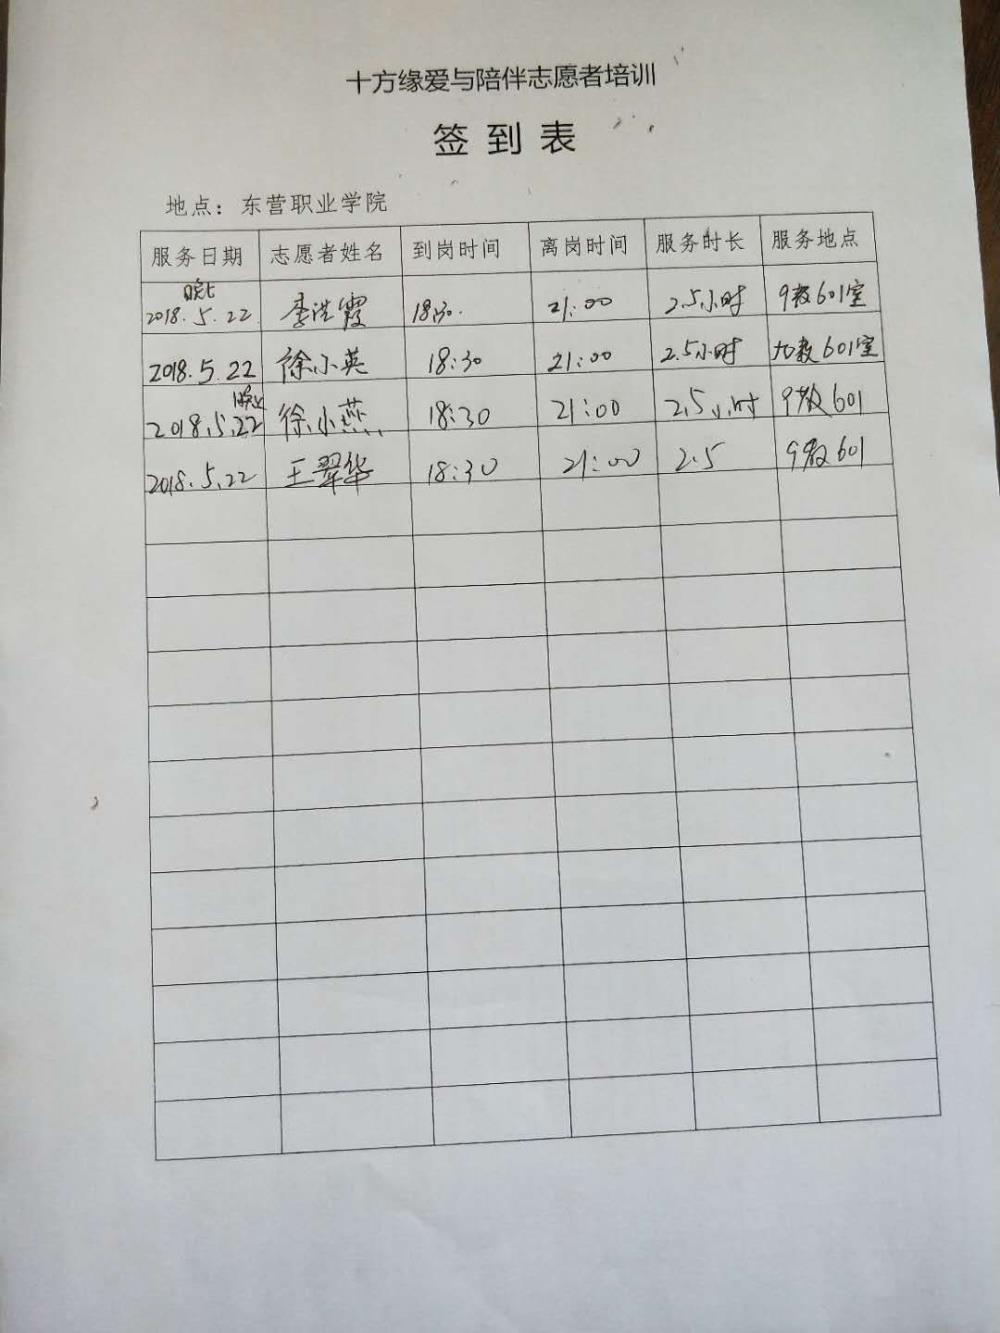 十方缘爱与陪伴志愿者培训
签到表
地点：东营职业学院
服务日期 志愿者姓名 到岗时间 离岗时间 服务时长 服务地点
晚上
2018.5.22 李洪霞 18:30. 21:00 2.5小时 9教601室
2018.5.22 徐小英 18:30 21:00 2.5小时 九教601室
晚上
2018.5.22 徐小燕 18:30 21:00 2.5小时 9教601
2018.5.22 王翠华 18:30 21:00 2.5 9教601